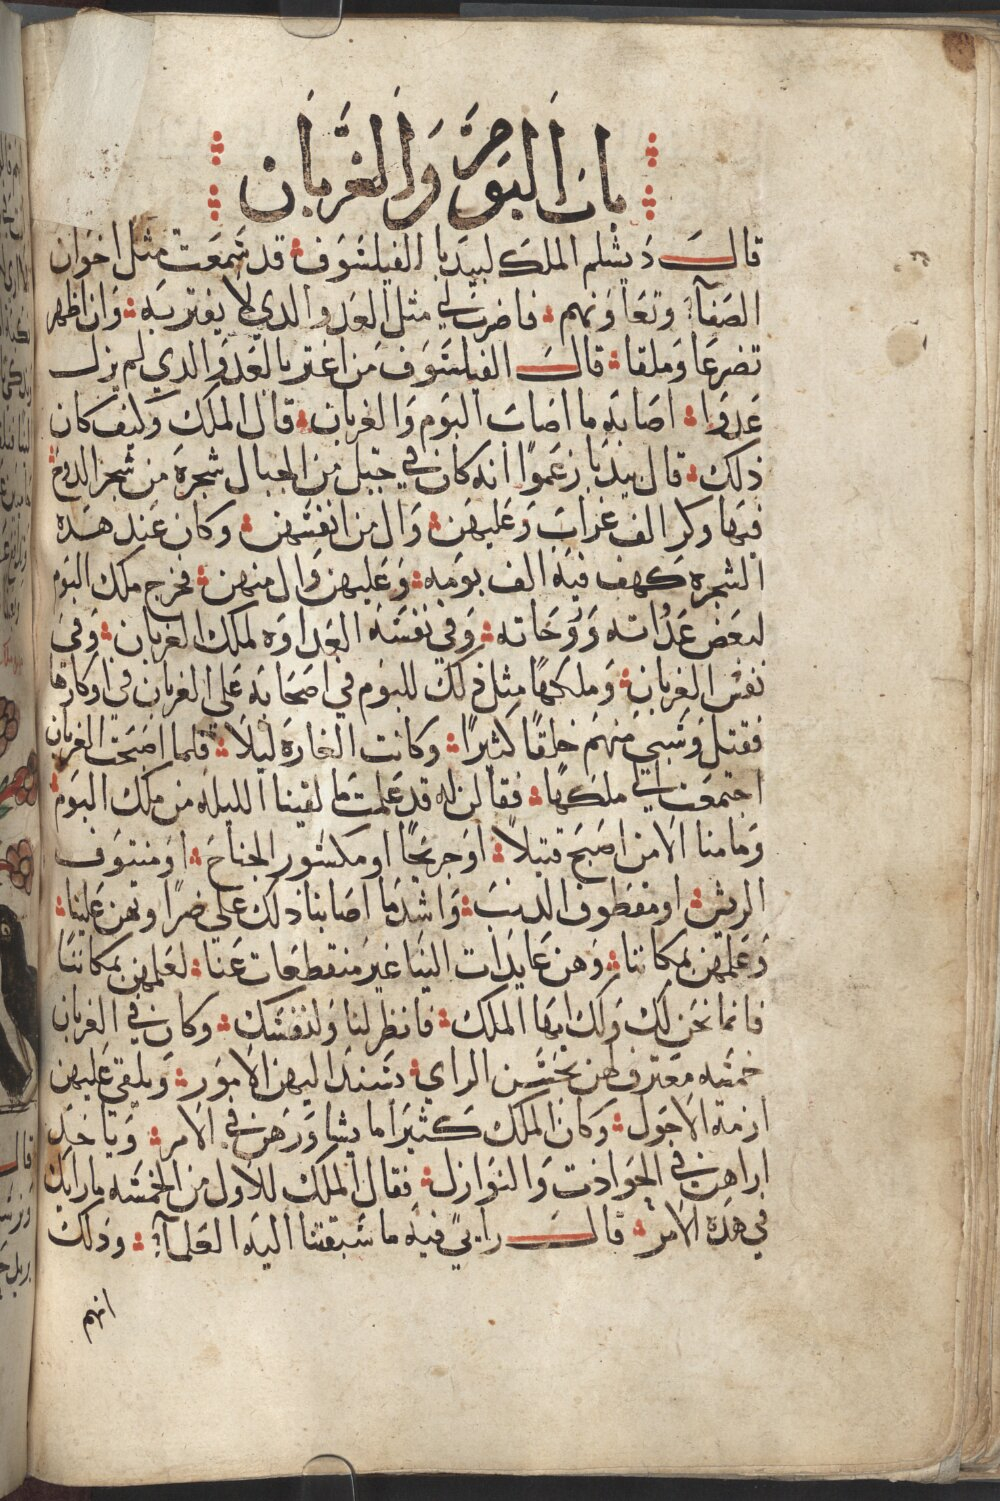 باب البوم والغربان
قال دبشلم الملك لبيدبا الفيلسوف قد سمعت مثل اخوان
الصفآ وتعاونهم فاضرب لي مثل العدو الدي لا يغتر به وان اظهر
تضرعا وملقا قال الفيلسوف من اغتر بالعدو الدي لم يزل
عدوا اصابه ما اصاب البوم والغربان قال الملك وكيف كان
ذلك قال بيدبا زعموا انه كان في جبل من الجبال شجرة من شجر الدوح
فيها وكر الف غراب وعليهن وال من انفسهن وكان عند هده
الشجره كهف فيه الف بومه وعليهن وال منهن فخرج ملك البوم
لبعض غدواته وروحاته وفي نفسه العداوه لملك الغربان وفي
نفس الغربان وملكها مثل ذلك للبوم في اصحابه على الغربان في اوكارها
فقتل وسبي منهم خلقا كثيرا وكانت الغارة ليلا فلما اصبحت الغربان
اجتمعت الي ملكها فقالن له قد علمت ما لقينا الليله من ملك البوم
وما منا الا من اصبح قتيلا او جريحا او مكسور الجناح او منتوف
الريش او مقطوف الدنب واشد ما اصابنا دلك علي ضرا وهن علينا
وعلمهن بمكاننا وهن عايدات الينا غير منقطعات عنا لعلمهن بمكاننا
فانما نحن لك ولك ايها الملك فانظر لنا ولنفسك وكان في الغربان
خمسه معترف لهن بحسن الراي يسند اليهن الامور ويلقي عليهن
ازمة الاحول وكان الملك كثيرا ما يشاورهن في الامر وياخد
اراهن في الحوادت والنوازل فقال الملك للاول من الخمسه ما رايك
في هده الامر قال رايي فيه ما سبقتنا اليه العلمآ ودلك
انهم